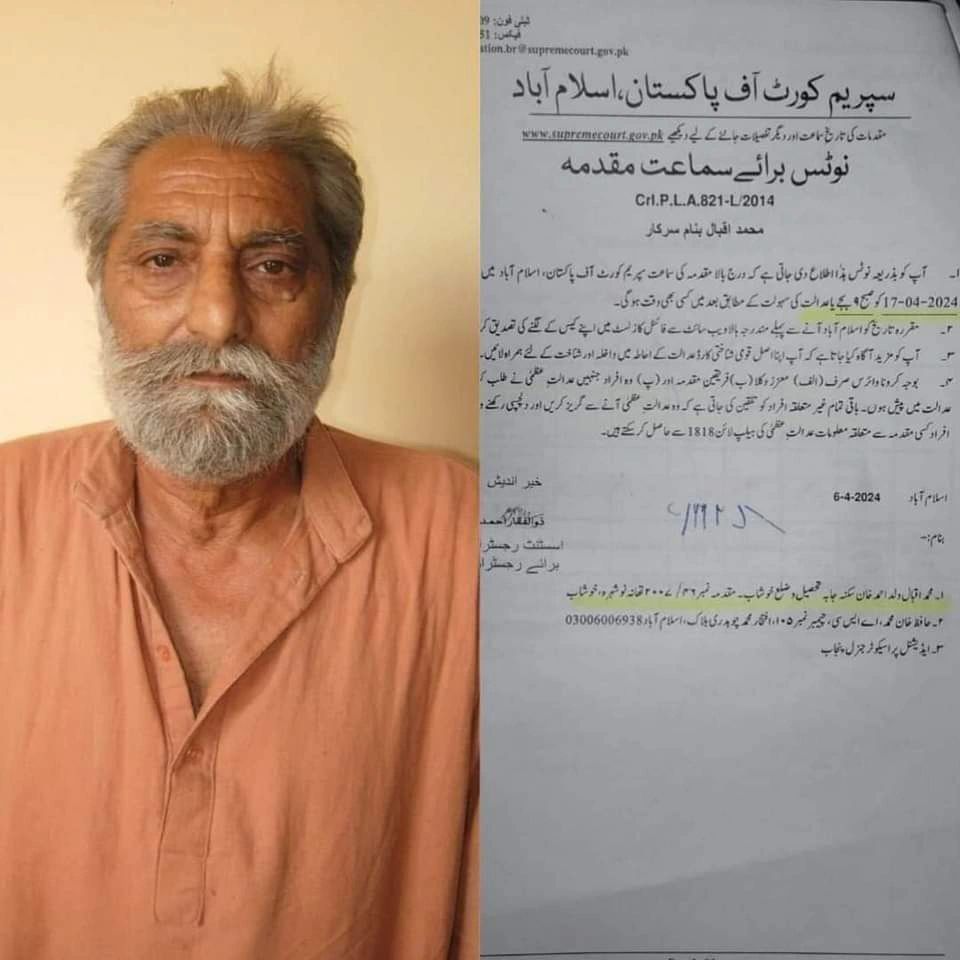 ٹیلی فون: 09
فیکس: 51
ation.br@supremecourt.gov.pk
سپریم کورٹ آف پاکستان، اسلام آباد
مقدمات کی تاریخ سماعت اور دیگر تفصیلات جاننے کے لیے دیکھیے www.supremecourt.gov.pk
نوٹس برائے سماعت مقدمہ
Crl.P.L.A.821-L/2014
محمد اقبال بنام سرکار
۱۔ آپ کو بذریعہ نوٹس ہذا اطلاع دی جاتی ہے کہ درج بالا مقدمہ کی سماعت سپریم کورٹ آف پاکستان، اسلام آباد میں
17-04-2024 کو صبح ۹ بجے یا عدالت کی سہولت کے مطابق بعد میں کسی بھی وقت ہوگی۔
۲۔ مقررہ تاریخ کو اسلام آباد آنے سے پہلے مندرجہ بالا ویب سائٹ سے فائنل کازلسٹ میں اپنے کیس کے لگنے کی تصدیق کر
۳۔ آپ کو مزید آگاہ کیا جاتا ہے کہ آپ اپنا اصل قومی شناختی کارڈ عدالت کے احاطہ میں داخلہ اور شناخت کے لئے ہمراہ لائیں۔
۴۔ بوجہ کرونا وائرس صرف (الف) معزز وکلا (ب) فریقین مقدمہ اور (پ) وہ افراد جنہیں عدالت عظمٰی نے طلب ک
عدالت میں پیش ہوں۔ باقی تمام غیر متعلقہ افراد کو تلقین کی جاتی ہے کہ وہ عدالت عظمٰی آنے سے گریز کریں اور دلچسپی رکھنے و
افراد کسی مقدمہ سے متعلقہ معلومات عدالت عظمٰی کی ہیلپ لائن 1818 سے حاصل کر سکتے ہیں۔
خیر اندیش
اسلام آباد 6-4-2024
ذوالفقار احمد
بنام:-
اسسٹنٹ رجسٹرا
برائے رجسٹرا
۱۔ محمد اقبال ولد احمد خان سکنہ جابہ تحصیل و ضلع خوشاب۔ مقدمہ نمبر ۴۶/۲۰۰۷ تھانہ نوشہرہ، خوشاب
۲۔ حافظ خان محمد، اے ایس سی، چیمبر نمبر ۱۰۵، افتخار محمد چوہدری بلاک، اسلام آباد 03006006938
۳۔ ایڈیشنل پراسیکوٹر جنرل پنجاب